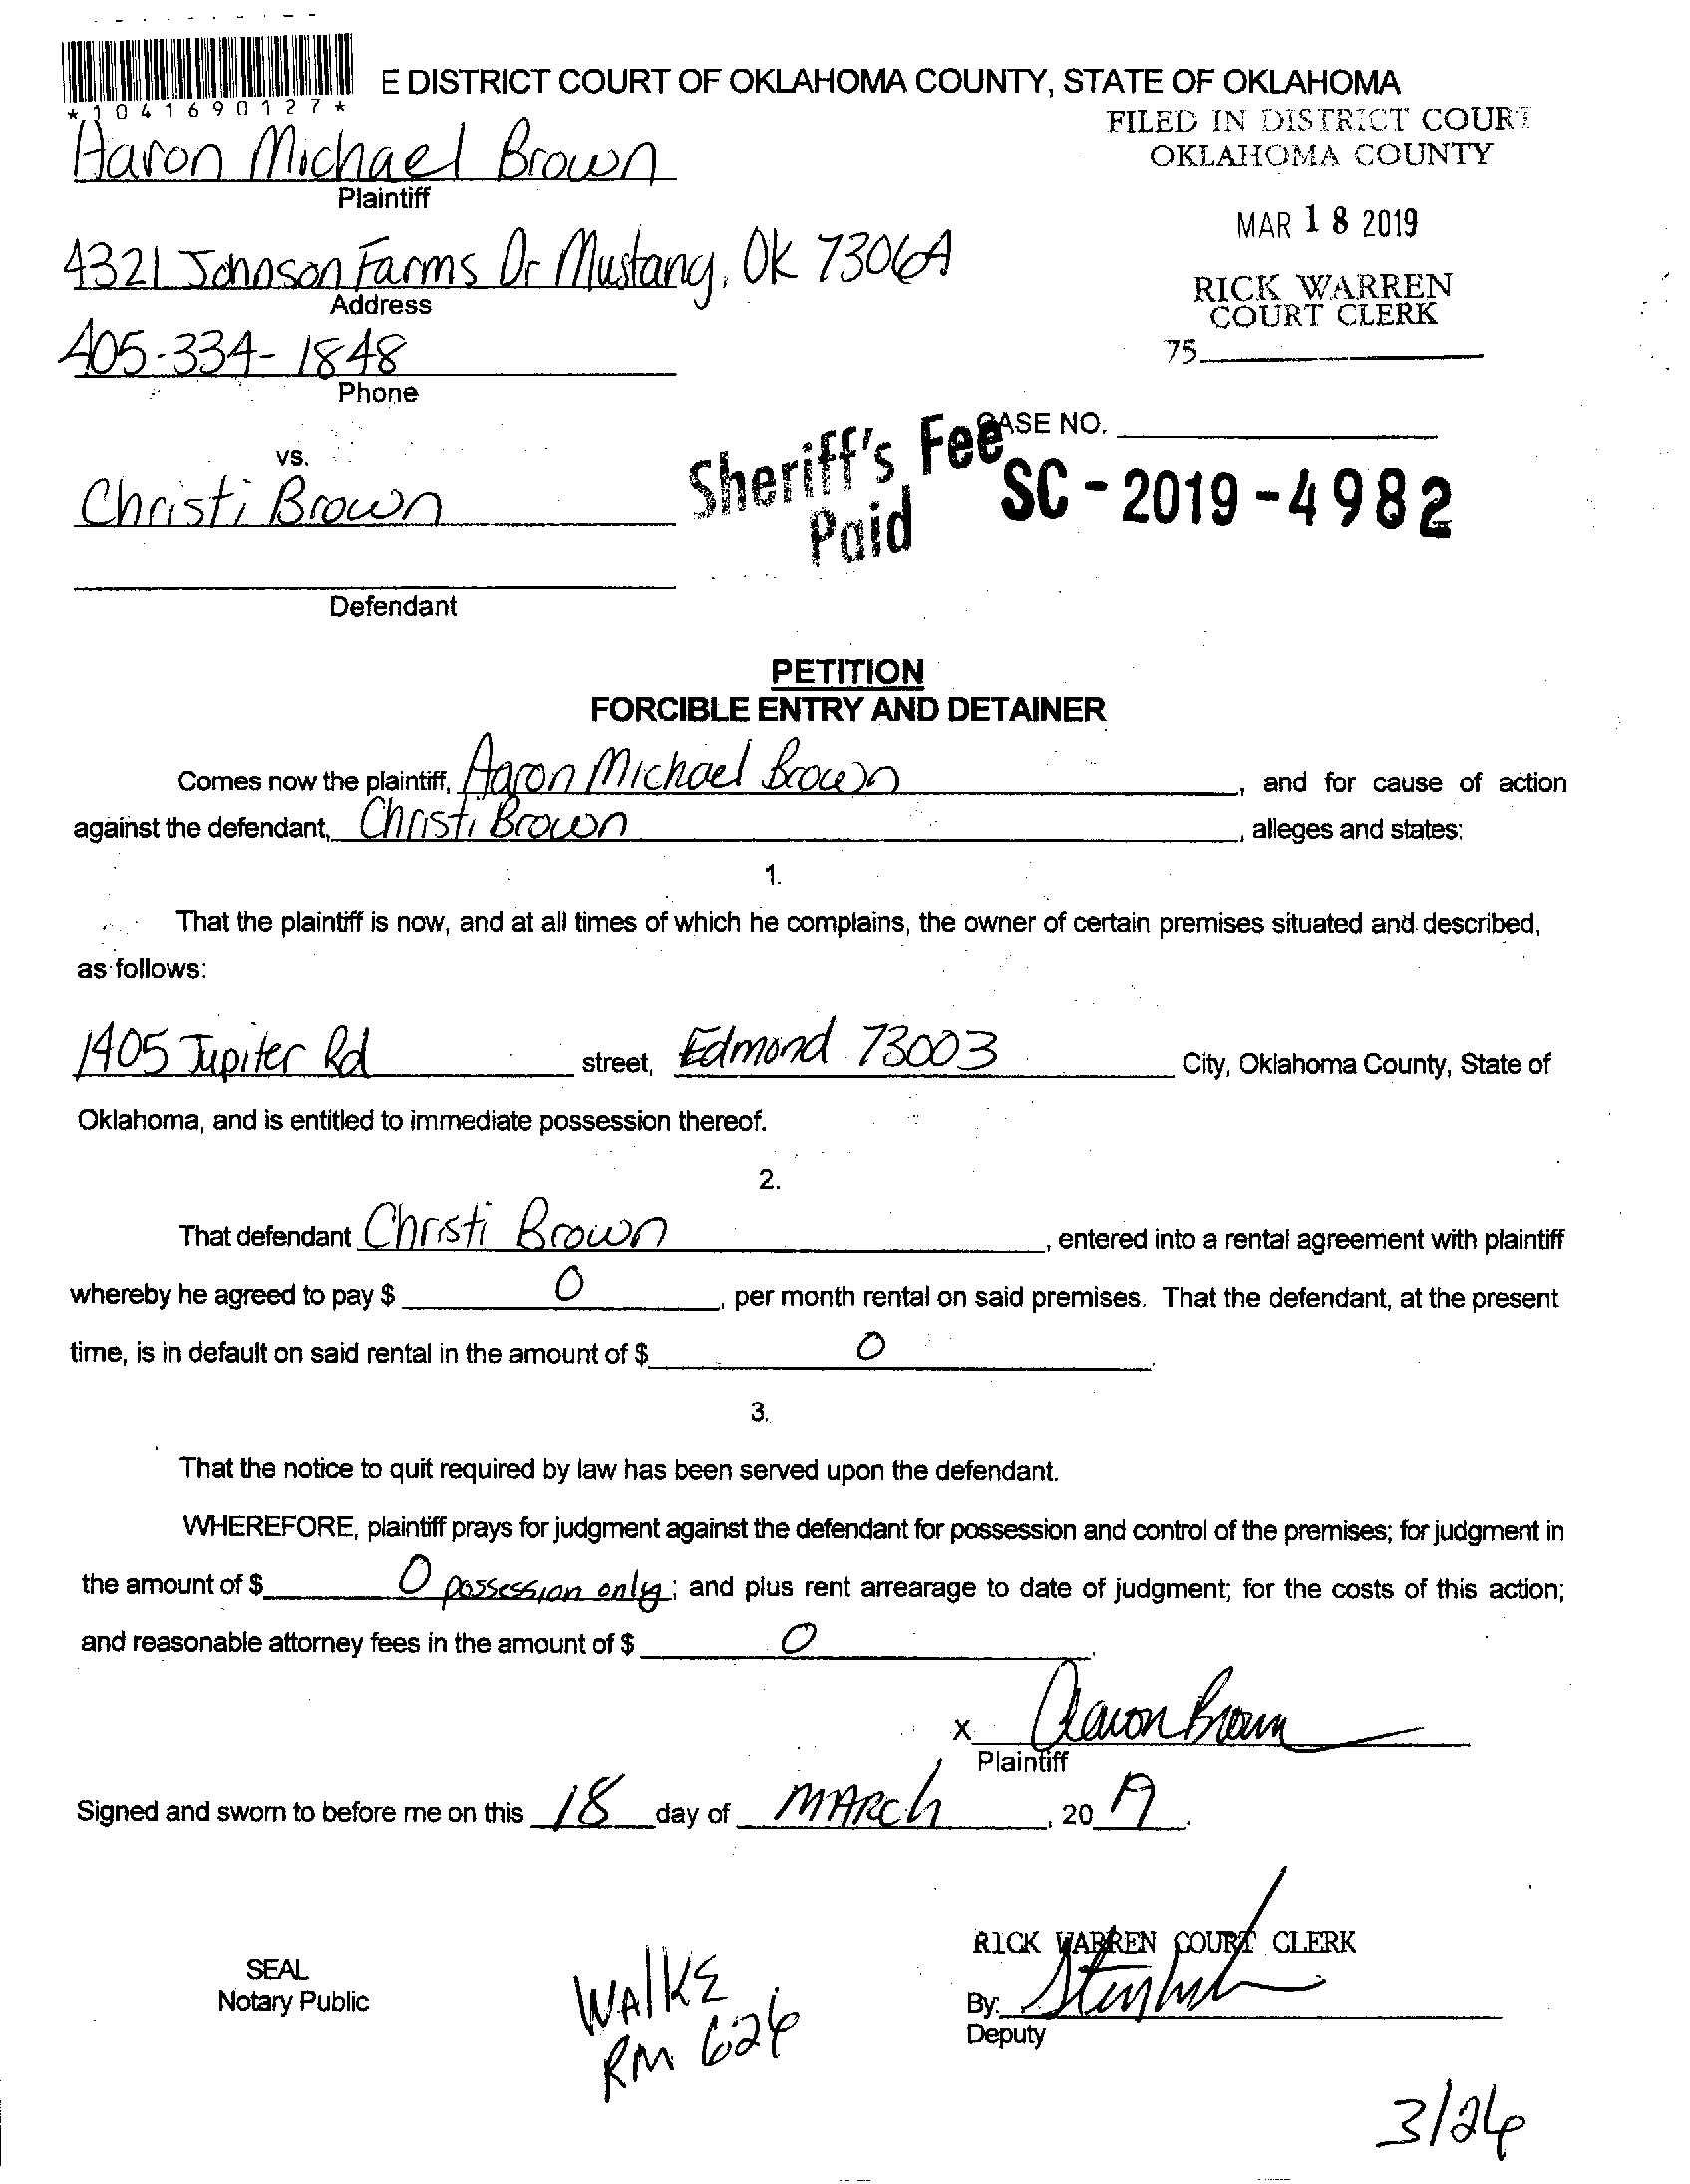 *1041690127*
E DISTRICT COURT OF OKLAHOMA COUNTY, STATE OF OKLAHOMA
FILED IN DISTRICT COURT
OKLAHOMA COUNTY
Aaron Michael Brown
Plaintiff
MAR 18 2019
4321 Johnson Farms Dr Mustang, OK 73064
Address
RICK WARREN
COURT CLERK
405-334-1848
Phone
75
CASE NO.
vs.
Sheriff's Fee
Paid
SC-2019-4982
Christi Brown
Defendant
PETITION
FORCIBLE ENTRY AND DETAINER
Comes now the plaintiff, Aaron Michael Brown, and for cause of action
against the defendant, Christi Brown, alleges and states:
1.
That the plaintiff is now, and at all times of which he complains, the owner of certain premises situated and described,
as follows:
1405 Jupiter Rd street, Edmond 73003 City, Oklahoma County, State of
Oklahoma, and is entitled to immediate possession thereof.
2.
That defendant Christi Brown, entered into a rental agreement with plaintiff
whereby he agreed to pay $ 0, per month rental on said premises. That the defendant, at the present
time, is in default on said rental in the amount of $ 0.
3.
That the notice to quit required by law has been served upon the defendant.
WHEREFORE, plaintiff prays for judgment against the defendant for possession and control of the premises; for judgment in
the amount of $ 0 possession only; and plus rent arrearage to date of judgment; for the costs of this action;
and reasonable attorney fees in the amount of $ 0.
x Aaron Brown
Plaintiff
Signed and sworn to before me on this 18 day of MARCh, 20 19.
RICK WARREN COURT CLERK
SEAL
Notary Public
WAlKE
RM 626
By:
Deputy
3/26